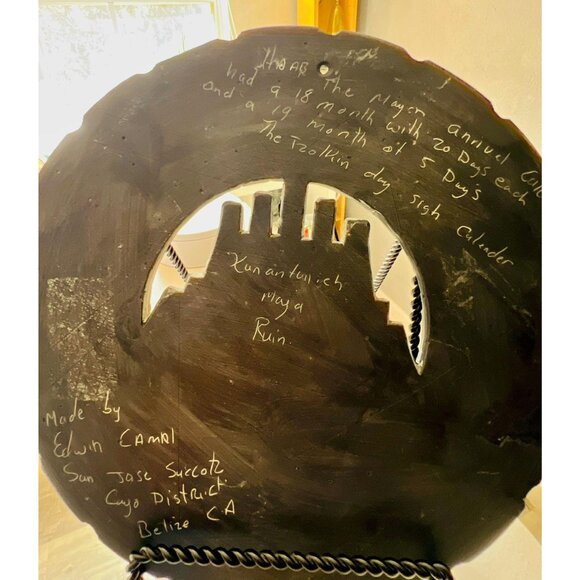 HAAB The Mayan annual Cale
had a 18 month with 20 Days each
and a 19 month of 5 Day's
The Tzolkin day sigh Calender
Xunantunich
Maya
Ruin.
Made by
Edwin CAMAl
San Jose Succotz
Cayo District
Belize C.A